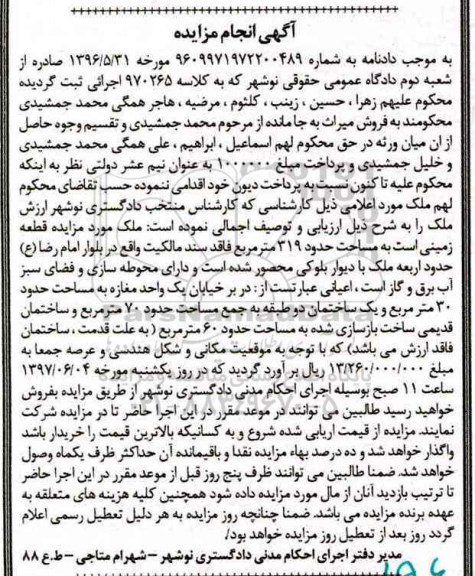 آگهی انجام مزایده
به موجب دادنامه به شماره ۹۶۰۹۹۷۱۹۷۲۲۰۰۴۸۹ مورخه ۱۳۹۶/۵/۳۱ صادره از
شعبه دوم دادگاه عمومی حقوقی نوشهر که به کلاسه ۹۷۰۲۶۵ اجرائی ثبت گردیده
محکوم علیهم زهرا ، حسین ، زینب ، کلثوم ، مرضیه ، هاجر همگی محمد جمشیدی
محکومند به فروش میراث به جا مانده از مرحوم محمد جمشیدی و تقسیم وجوه حاصل
از ان میان ورثه در حق محکوم لهم اسماعیل ، ابراهیم ، علی همگی محمد جمشیدی
و خلیل جمشیدی و پرداخت مبلغ ۱۰۰۰۰۰۰ به عنوان نیم عشر دولتی نظر به اینکه
محکوم علیه تا کنون نسبت به پرداخت دیون خود اقدامی ننموده حسب تقاضای محکوم
لهم ملک مورد اعلامی ذیل کارشناسی که کارشناس منتخب دادگستری نوشهر ارزش
ملک را به شرح ذیل ارزیابی و توصیف اجمالی نموده است: ملک مورد مزایده قطعه
زمینی است به مساحت حدود ۳۱۹ متر مربع فاقد سند مالکیت واقع در بلوار امام رضا (ع)
حدود اربعه ملک با دیوار بلوکی محصور شده است و دارای محوطه سازی و فضای سبز
آب برق و گاز است ، اعیانی عبارتست از : در بر خیابان یک واحد مغازه به مساحت حدود
۳۰ متر مربع و یک ساختمان دو طبقه به جمع مساحت حدود ۷۰ متر مربع و ساختمان
قدیمی ساخت بازسازی شده به مساحت حدود ۶۰ متر مربع ( به علت قدمت ، ساختمان
فاقد ارزش می باشد) که با توجه به موقعیت مکانی و شکل هندسی و عرصه جمعا به
مبلغ ۱۳/۲۶۰/۰۰۰/۰۰۰ ریال بر آورد گردید که در روز یکشنبه مورخه ۱۳۹۷/۰۶/۰۴
ساعت ۱۱ صبح بوسیله اجرای احکام مدنی دادگستری نوشهر از طریق مزایده بفروش
خواهید رسید طالبین می توانند در موعد مقرر در این اجرا حاضر تا در مزایده شرکت
نمایند. مزایده از قیمت اریابی شده شروع و به کسانیکه بالاترین قیمت را خریدار باشد
واگذار خواهد شد و ده درصد بهاء مزایده نقدا و باقیمانده آن حداکثر ظرف یکماه وصول
خواهد شد. ضمنا طالبین می توانند ظرف پنج روز قبل از موعد مقرر در این اجرا حاضر
تا ترتیب بازدید آنان از مال مورد مزایده داده شود همچنین کلیه هزینه های متعلقه به
عهده برنده مزایده می باشد. ضمنا چنانچه روز مزایده به هر دلیل تعطیل رسمی اعلام
گردد روز بعد از تعطیل روز مزایده خواهد بود./
مدیر دفتر اجرای احکام مدنی دادگستری نوشهر – شهرام متاجی – ط.ع ۸۸